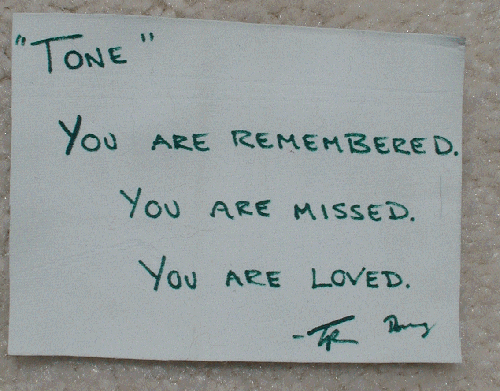 "TONE"
YOU ARE REMEMBERED.
YOU ARE MISSED.
YOU ARE LOVED.